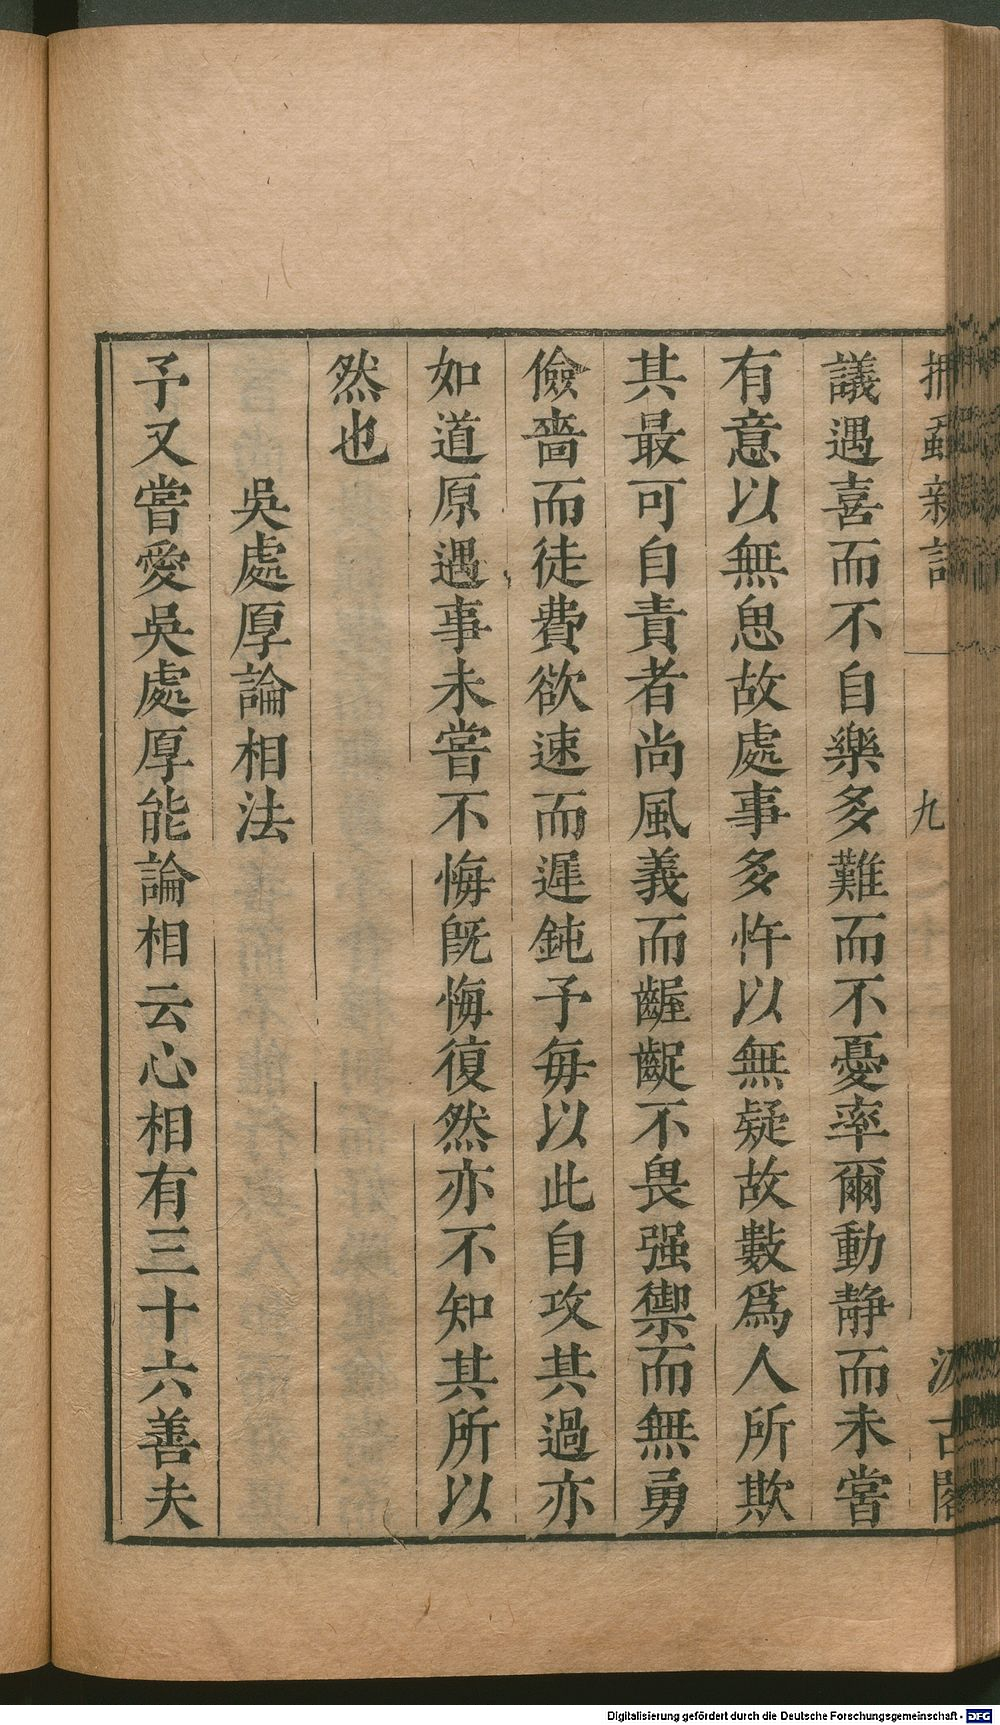 捫蝨新話
九
汲古閣
議遇喜而不自樂多難而不憂率爾動靜而未嘗
有意以無思故處事多忤以無疑故數爲人所欺
其最可自責者尚風義而齷齪不畏强禦而無勇
儉嗇而徒費欲速而遲鈍予每以此自攻其過亦
如道原遇事未嘗不悔旣悔復然亦不知其所以
然也
吳處厚論相法
予又嘗愛吳處厚能論相云心相有三十六善夫
Digitalisierung gefördert durch die Deutsche Forschungsgemeinschaft - DFG